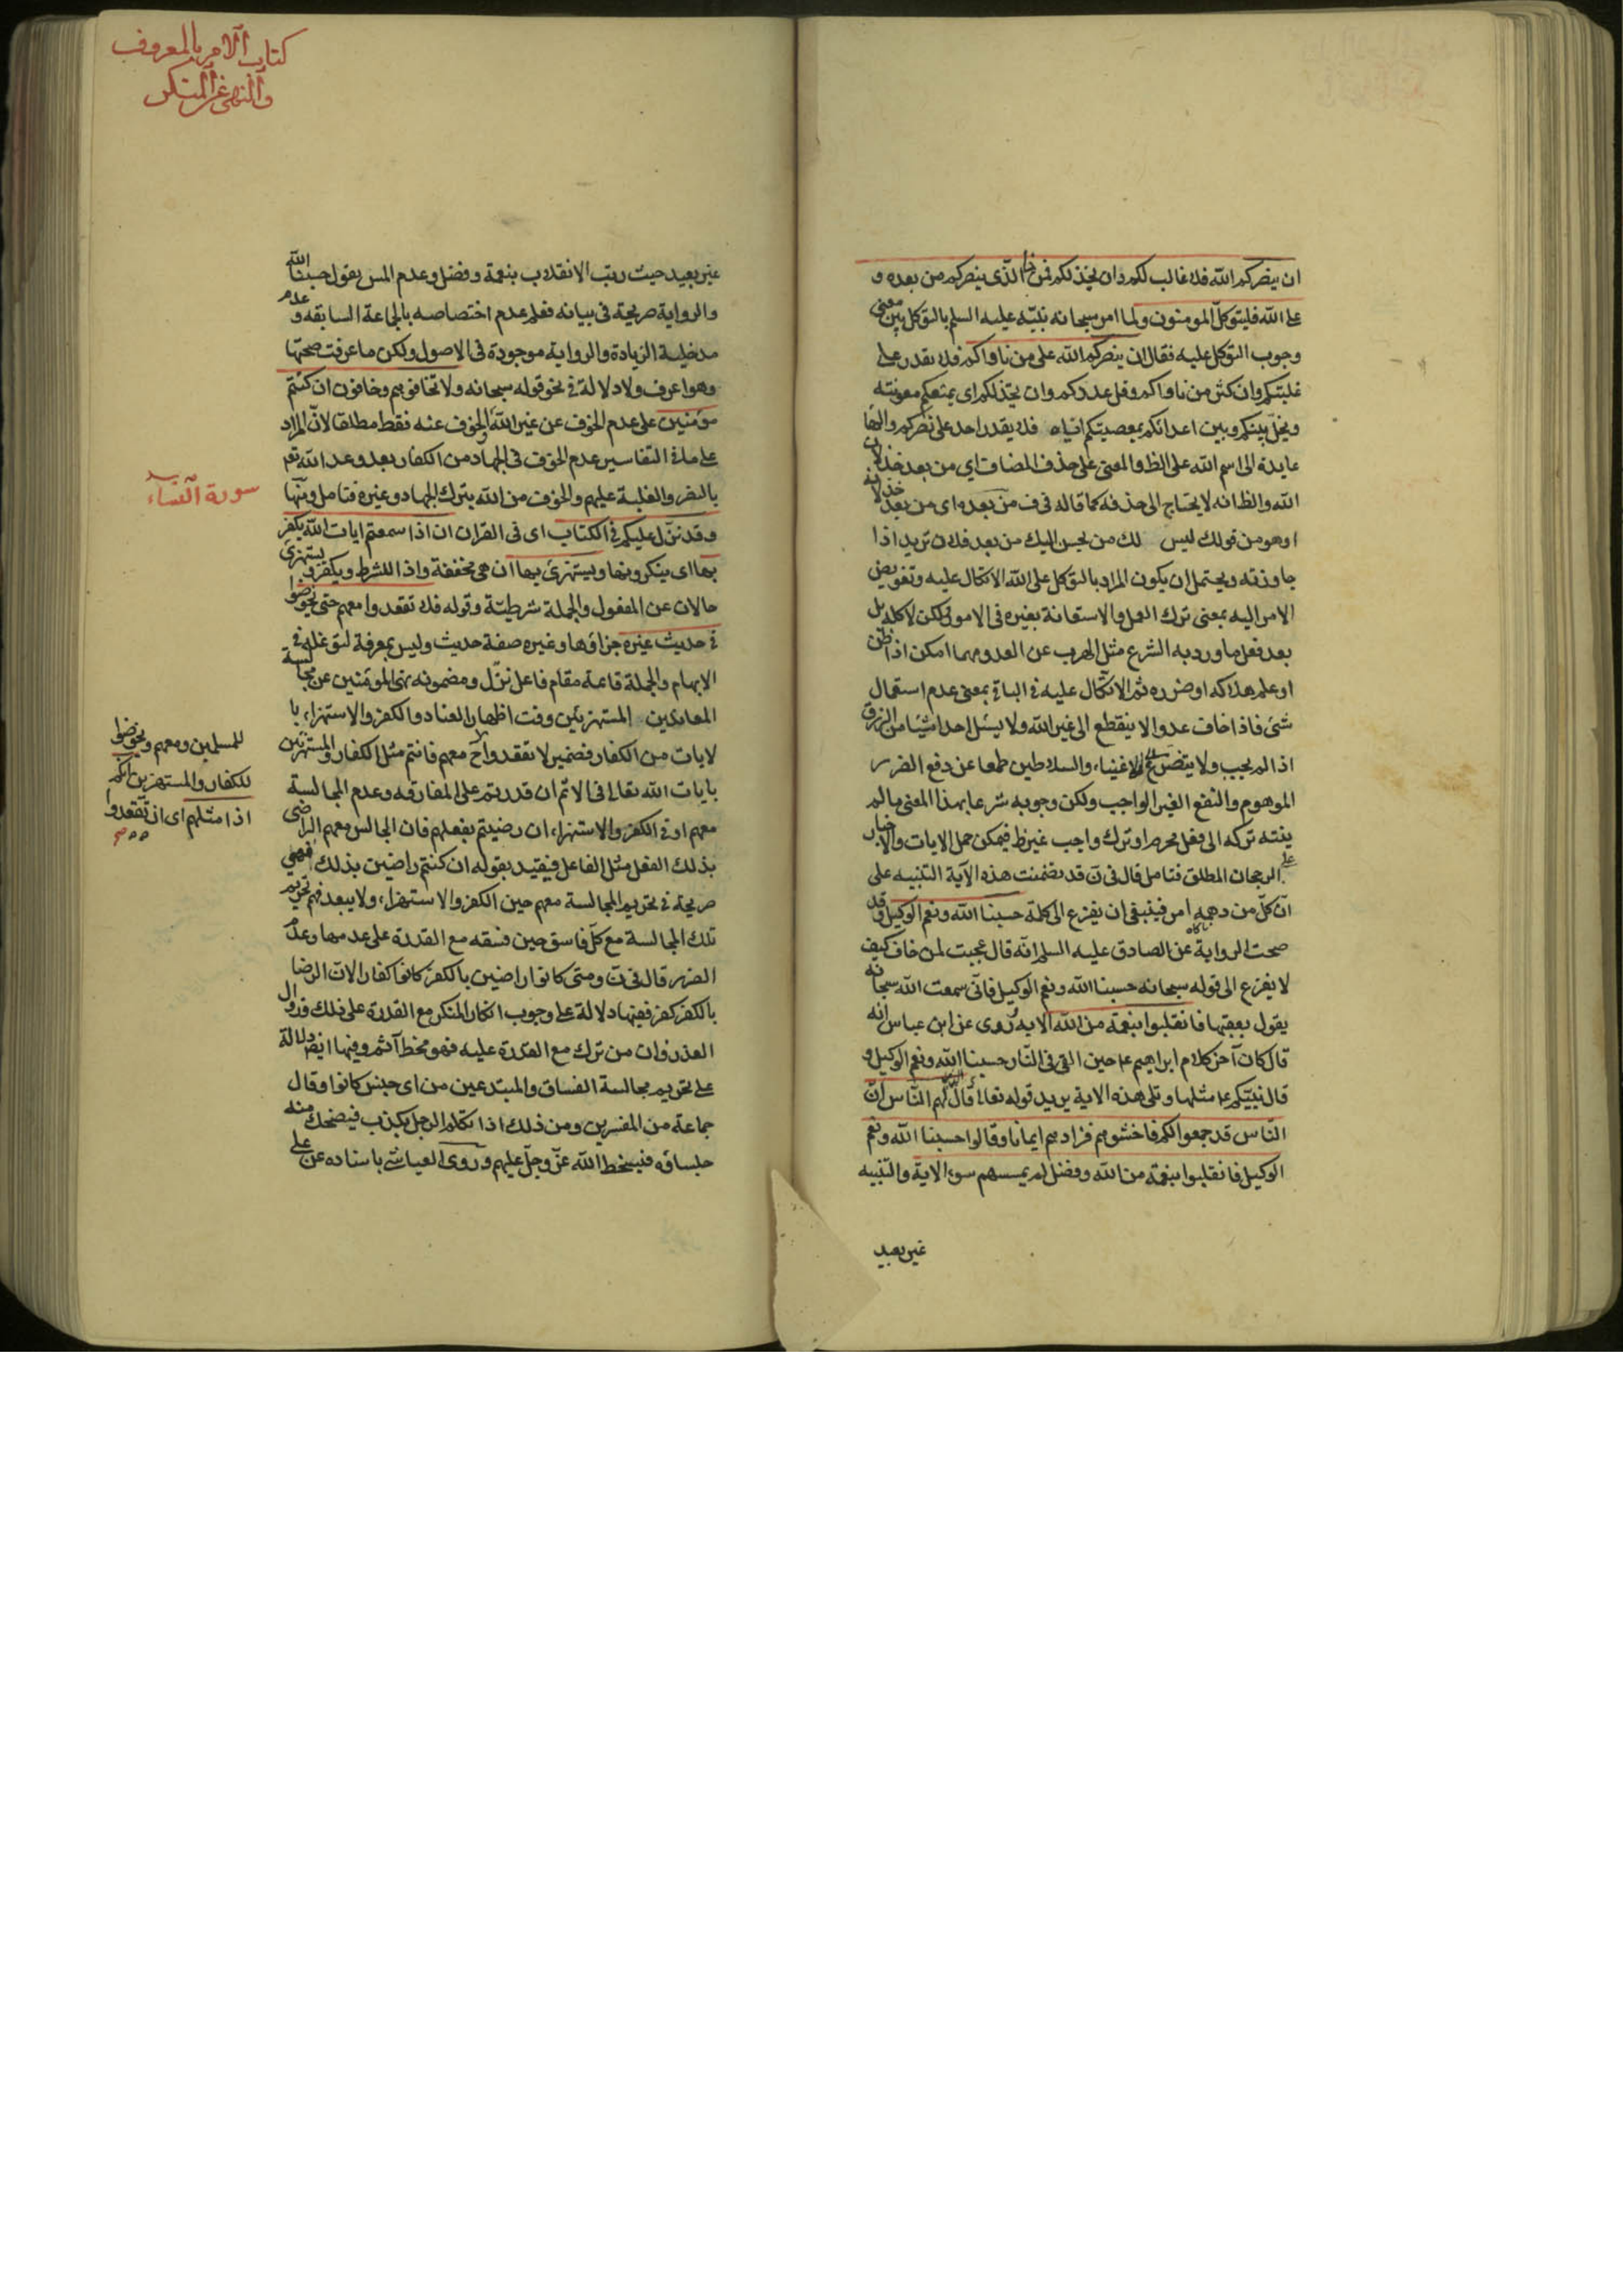 ان ينصركم الله فلا غالب لكم وان يخذلكم فمن ذا الذى ينصركم من بعده و
على الله فليتوكل المومنون ولما امر سبحانه نبيّه عليه السلم بالتوكل بين معنى
وجوب التوكل عليه فقال ان ينصركم الله على من ناواكم فلا يقدر على
غلبتكم وان كثر من ناواكم وقل عددكم وان يخذلكم اى يمنعكم معونته
ويخل بينكم وبين اعدائكم بمعصيتكم اياه فلا يقدر احد على نصركم والهاء
عايدة الى اسم الله على الظ والمعنى على حذف المضاف اي من بعد خذلان
الله والظ انه لا يحتاج الى حذفه كما قاله فى ف من بعده اى من بعد خذلانه
اوهو من قولك ليس لك من يحسن اليك من بعد فلان تريد اذا
جاوزته ويحتمل ان يكون المراد بالتوكل على الله الاتكال عليه وتفويض
الامر اليه بمعنى ترك العمل والاستعانة بغيره فى الامور لكن لا كله بل
بعد فعل ما ورد به الشرع مثل الهرب عن العدو مهما امكن اذا ظن
او علم هلاكه او ضرره ثم الاتكال عليه فى الباقي بمعنى عدم استعمال
شئ فاذا خاف عدوا لا ينقطع الى غير الله ولا يسئل احدا شيئا من الرزق
اذا لم يجب ولا يتضرع الاغنياء والسلاطين طمعا عن دفع الضرر
الموهوم والنفع الغير الواجب ولكن وجوبه شرعا بهذا المعنى ما لم
ينته تركه الى فعل محرم او ترك واجب غير ظ فيمكن حمل الايات والاخبار
على الرجحان المطلق فتامل قال فى ن قد تضمنت هذه الآية التنبيه على
ان كل من دهمه امر فينبغى ان يفزع الى كلمة حسبنا الله ونعم الوكيل وقد
صحت الرواية عن الصادق عليه السلم انه قال عجبت لمن خاف كيف
لا يفزع الى قوله سبحانه حسبنا الله ونعم الوكيل فانى سمعت الله سبحانه
يقول بعقبها فانقلبوا بنعمة من الله الاية وروى عن ابن عباس انه
قال كان آخر كلام ابراهيم ع حين القى فى النار حسبنا الله ونعم الوكيل و
قال نبيّكم ع مثلها وتلى هذه الاية يريد قوله تعالى الذين قال لهم الناس ان
الناس قد جمعوا لكم فاخشوهم فزادهم ايمانا وقالوا حسبنا الله ونعم
الوكيل فانقلبوا بنعمة من الله وفضل لم يمسسهم سوء الاية والتنبيه
غير بعيد
كتاب الامر بالمعروف
والنهى عن المنكر
غير بعيد حيث رتب الانقلاب بنعمة وفضل وعدم المس بقول حسبنا الله
والرواية صريحة فى بيانه فعلم عدم اختصاصه بالجماعة السابقه وعدم
مدخلية الزيادة والرواية موجودة فى الاصول ولكن ما عرفت صحتها
وهو اعرف ولا دلالة فى نحو قوله سبحانه ولا تخافوهم وخافون ان كنتم
مؤمنين على عدم الخوف عن غير الله والخوف عنه فقط مطلقا لان المراد
على ما فى التفاسير عدم الخوف فى الجهاد من الكفار بعد وعد الله تع
بالنصر والغلبة عليهم والخوف من الله بترك الجهاد وغيره فتامل ومنها
وقد نزل عليكم فى الكتاب اى فى القران ان اذا سمعتم ايات الله يكفر
بها اى ينكرونها ويستهزئ بها ان هى مخففة واذا للشرط ويكفر ويستهزئ
حالان عن المفعول والجملة شرطيّة وقوله فلا تقعدوا معهم حتى يخوضوا
فى حديث غيره جزاؤها وغيره صفة حديث وليس بمعرفة لتوغله فى
الابهام والجملة قائمة مقام فاعل نزّل ومضمونه نهى المؤمنين عن مجالسة
المعاندين المستهزئين وقت اظهار العناد والكفر والاستهزاء با
لايات من الكفار فضمير لا تقعدوا معهم فانتم مثل الكفار والمستهزئين
بايات الله تعالى فى الاثم ان قدرتم على المفارقه وعدم المجالسة
معهم او فى الكفر والاستهزاء ان رضيتم بفعلهم فان الجالس معهم الراضى
بذلك الفعل مثل الفاعل فيقيد بقوله ان كنتم راضين بذلك فهي
صريحة فى تحريم المجالسة معهم حين الكفر والاستهزاء ولا يبعد فهم تحريم
تلك المجالسة مع كل فاسق حين فسقه مع القدرة على عدمها وعدم
الضرر قال فى ن ومتى كانوا راضين بالكفر كانوا كفارا لان الرضا
بالكفر كفر ففيها دلالة على وجوب انكار المنكر مع القدرة على ذلك وزوال
العذر وان من ترك مع القدرة عليه فهو مخط آثم وفيها ايضا دلالة
على تحريم مجالسة الفساق والمبتدعين من اى جنس كانوا وقال
جماعة من المفسرين ومن ذلك اذا تكلم الرجل بكذب فيضحك منه
جلساؤه فيسخط الله عزّ وجلّ عليهم وروى العياشى باسناده عن على
سورة النساء
للمسلمين ومعهم ويخوضوا
للكفار والمستهزئين انكم
اذا مثلهم اى ان تقعدوا
صح